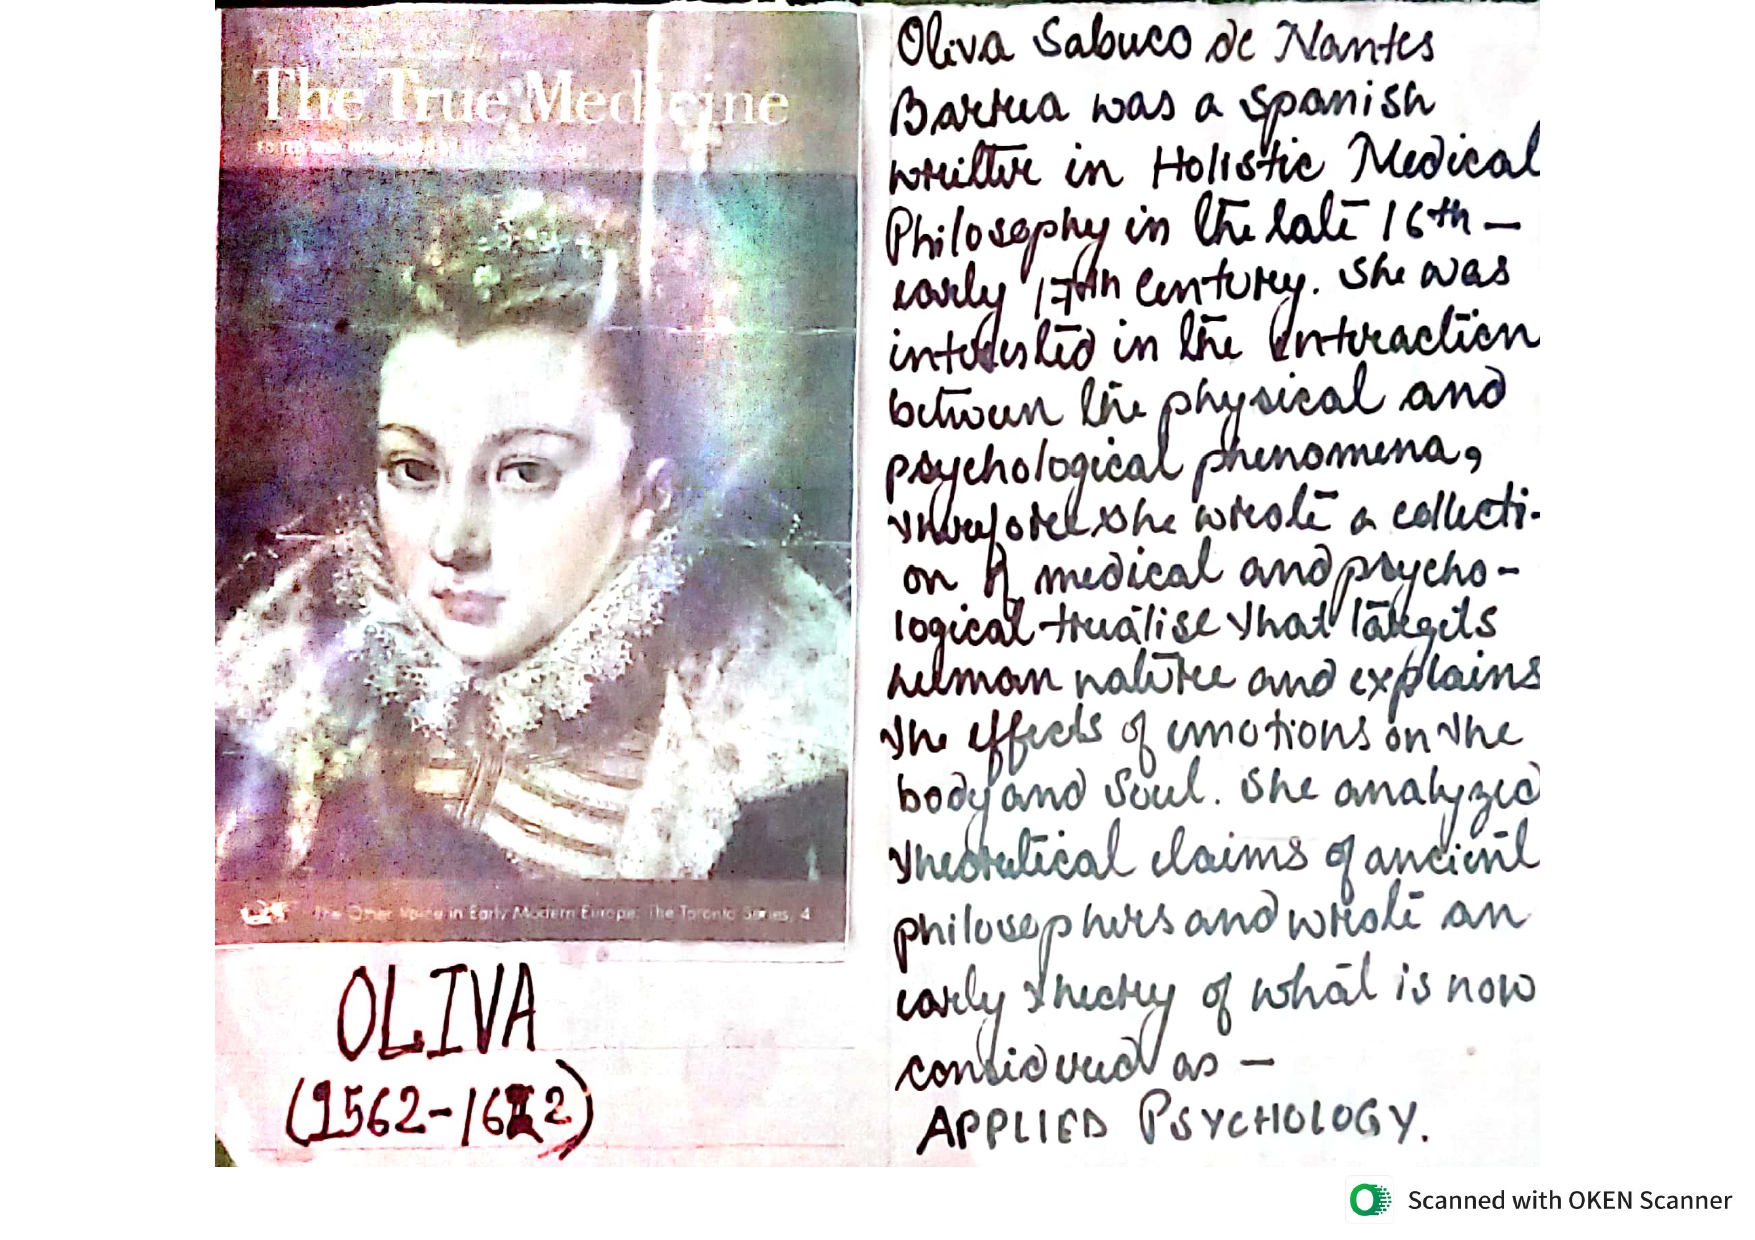 The True Medicine
The Other Voice in Early Modern Europe: The Toronto Series, 4
OLIVA
(1562-1622)
Oliva Sabuco de Nantes
Barrera was a Spanish
writter in Holistic Medical
Philosophy in the late 16th –
early 17th Century. She was
interested in the interaction
between the physical and
psychological phenomena,
therefore she wrote a collecti-
on of medical and psycho-
logical treatise that targets
human nature and explains
the effects of emotions on the
body and Soul. She analyzed
theoretical claims of ancient
philosophers and wrote an
early theory of what is now
considered as –
APPLIED PSYCHOLOGY.
Scanned with OKEN Scanner